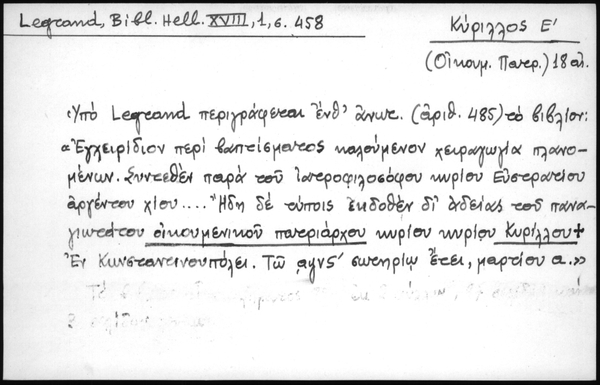 Legrand, Bibl. Hell. XVIII, 1, σ. 458
Κύριλλος Ε'
(Οἰκουμ. Πατρ.) 18 αἰ.
Ὑπὸ Legrand περιγράφεται ἔνθ' ἀνωτ. (ἀριθ. 485) τὸ βιβλίον:
«Ἐγχειρίδιον περὶ βαπτίσματος καλούμενον χειραγωγία πλανο-
μένων. Συντεθὲν παρὰ τοῦ ἰατροφιλοσόφου κυρίου Εὐστρατίου
ἀργέντου χίου.... Ἤδη δὲ τύποις ἐκδοθὲν δι' ἀδείας τοῦ πανα-
γιωτάτου οἰκουμενικοῦ πατριάρχου κυρίου κυρίου Κυρίλλου +
Ἐν Κωνσταντινουπόλει. Τῷ αψνϛ' σωτηρίῳ ἔτει, μαρτίου α.»